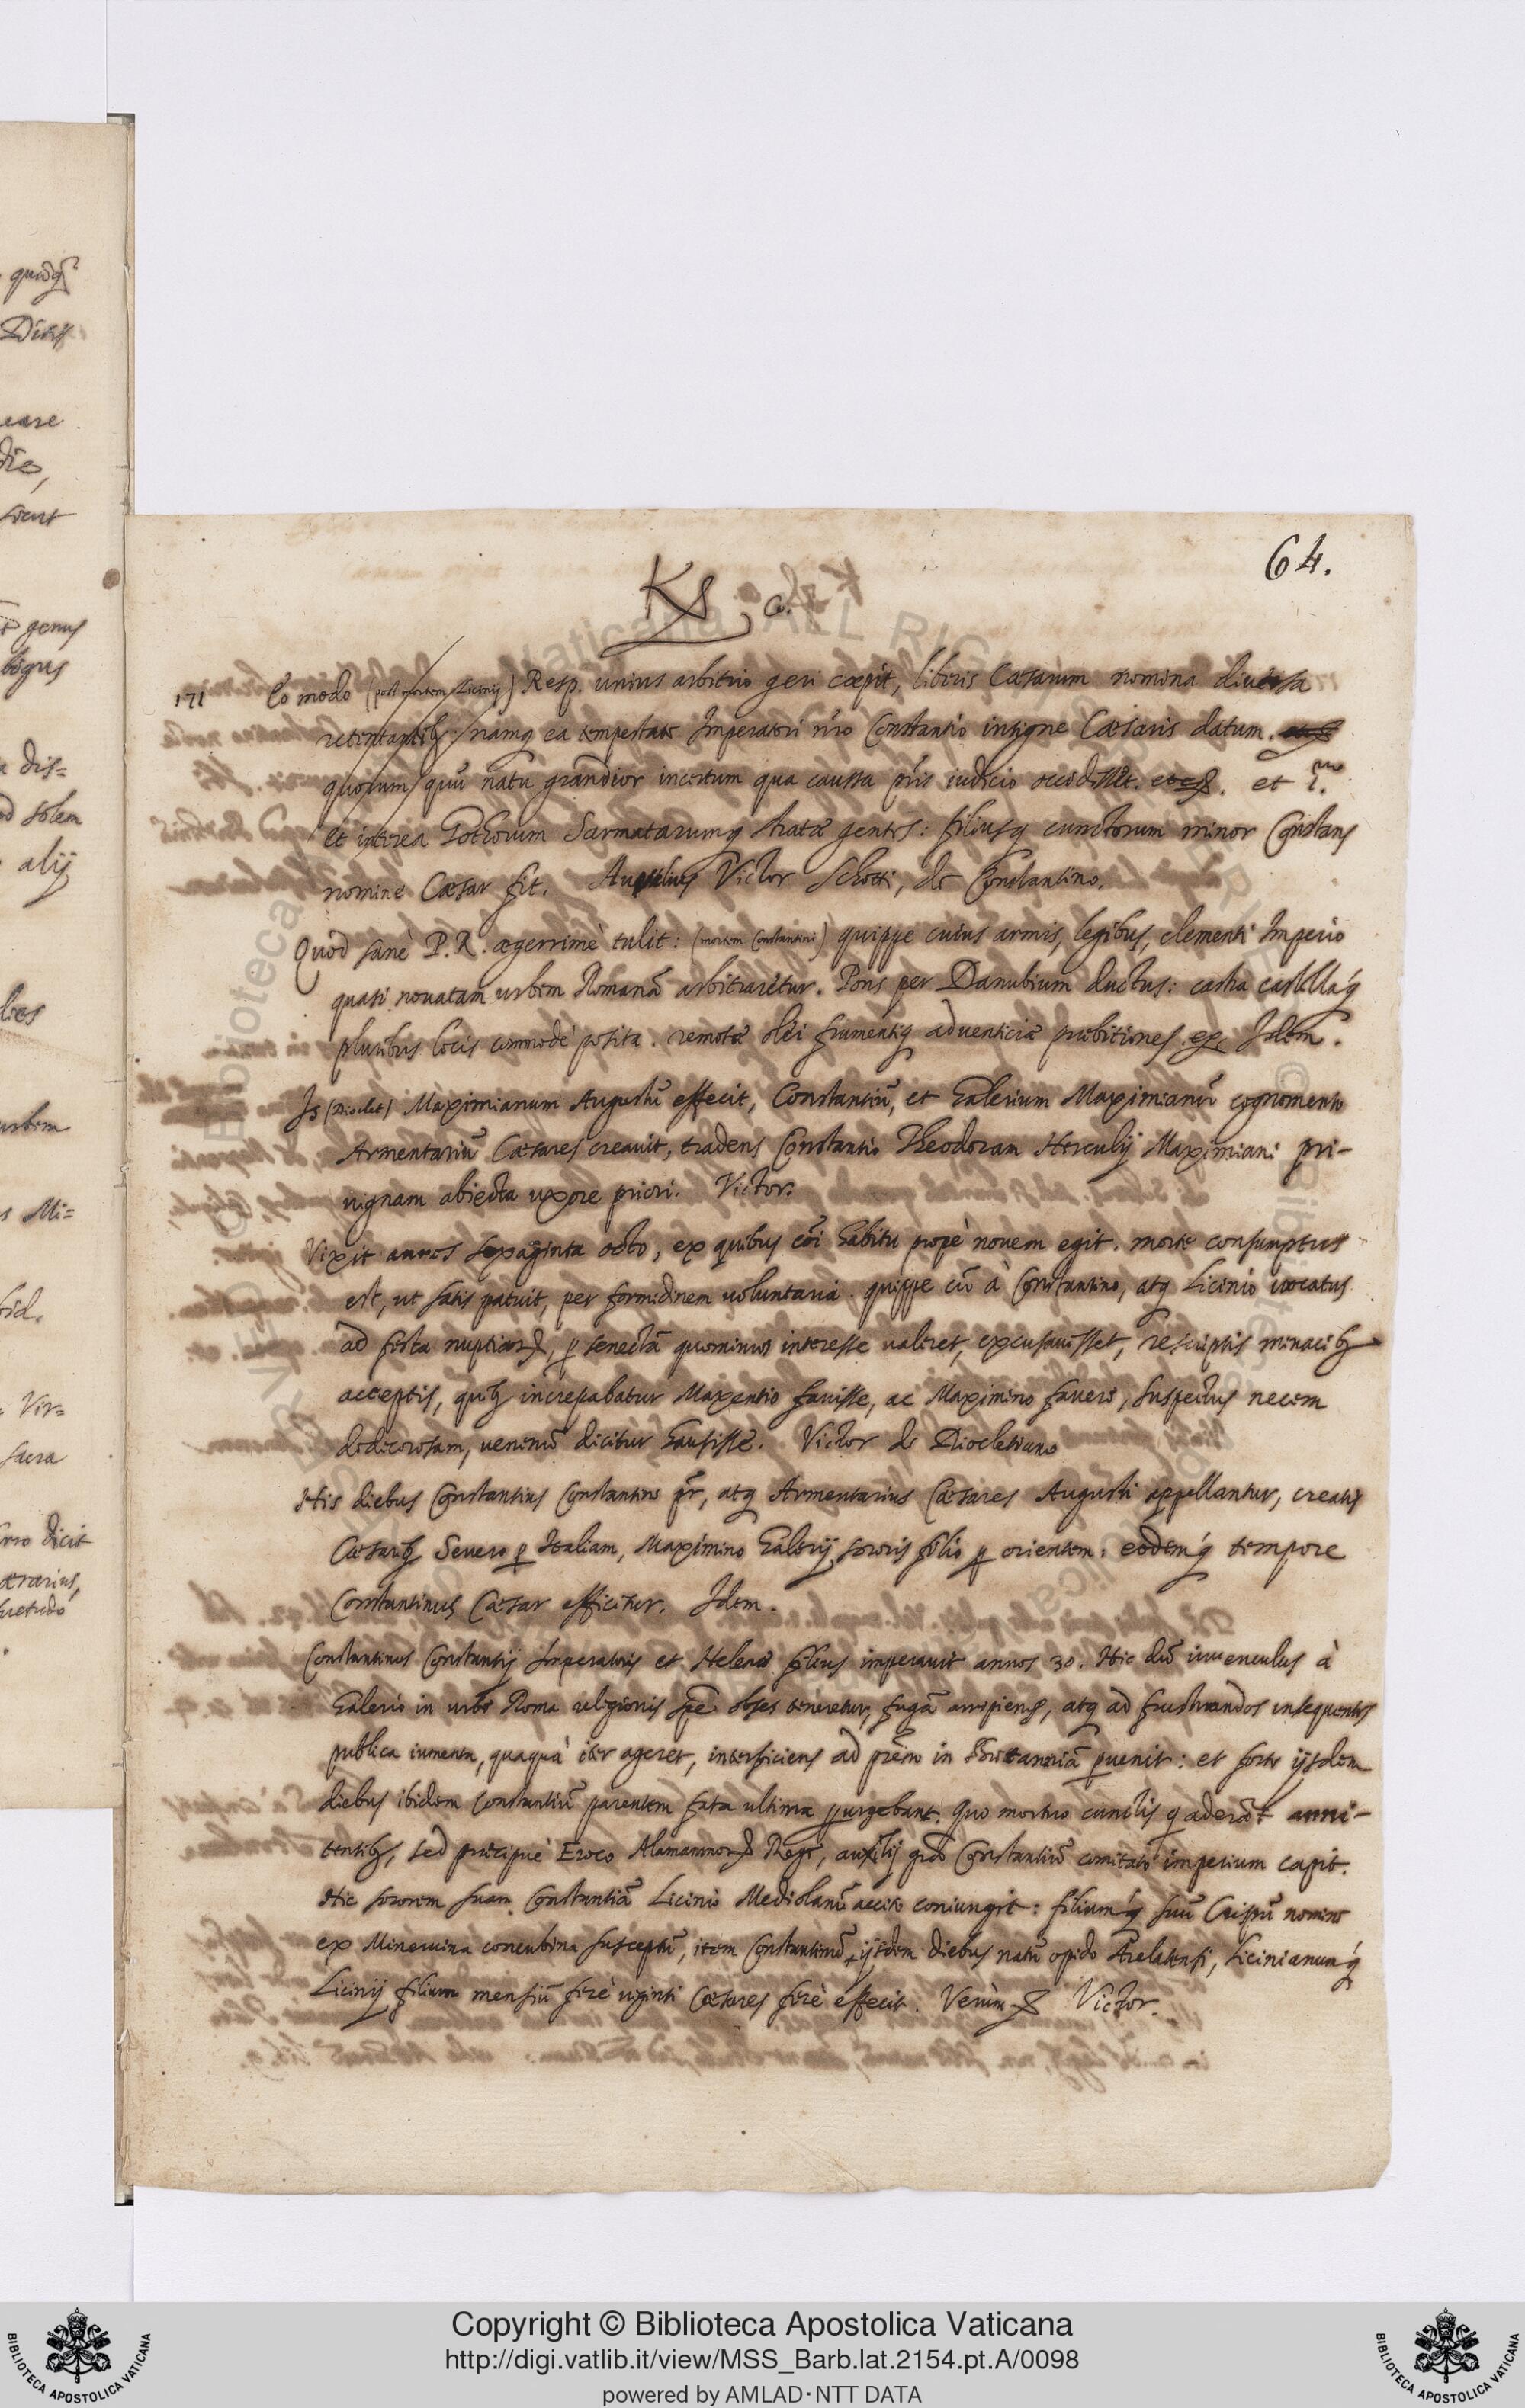 64.
K
171 Eo modo (post mortem Licinij) Resp. unius arbitrio geri cœpit, liberis Cæsarum nomina diversa
retentantibꝫ: namq ea tempestate Imperatori nr̃o Constantio insigne Cæsaris datum.
quorum quũ natu grandior incertum qua caussa pr̃is iudicio occidisset. et
Et interea Gothorum Sarmatarumq stratæ gentes: filiusq cunctorum minor Constans
nomine Cæsar fit. Aurelius Victor Schotti, de Constantino.
Quod sanè P.R. ægerrimè tulit: (mortem Constantini) quippe cuius armis, legibus, clementi Imperio
quasi nouatam urbem Romanã arbitraretur. Pons per Danubium ductus: castra castellaq́
pluribus locis commodè posita. remotæ olei frumentiq adventiciæ præbitiones. Idem.
Is (Dioclet) Maximianum Augustũ effecit, Constantiũ, et Galerium Maximianũ cognomento
Armentariũ Cæsares creauit, tradens Constantio Theodoram Herculij Maximiani pri-
uignam abiecta uxore priori. Victor.
Vixit annos sexaginta octo, ex quibus cõi habitu propè nouem egit. morte consumptus
est, ut satis patuit, per formidinem uoluntaria. quippe cũ à Constantino, atq Licinio uocatus
ad festa nuptiarꝝ, ꝑ senectã quominus interesse ualeret, excusauisset, rescriptis minacibꝫ
acceptis, quibꝫ increpabatur Maxentio fauisse, ac Maximino favere, suspectus necem
dedecorosam, uenenũ dicitur hausisse. Victor de Diocletiano
His diebus Constantius Constantini pr̃, atq Armentarius Cæsares Augusti appellantur, creatis
Cæsaribꝫ Severo ꝑ Italiam, Maximino Galerij sororis filio ꝑ orientem: eodemq́ tempore
Constantinus Cæsar efficitur. Idem.
Constantinus Constantij Imperatoris et Helenæ filius imperauit annos 30. Hic dũ iuuenculus à
Galerio in urbe Roma religionis spẽ obses teneretur, fugã arripiens, atq ad frustrandos insequentes
publica iumenta, quaquà iter ageret, interficiens ad pr̃em in Britanniã ꝑuenit: et forte ijsdem
diebus ibidem Constantiũ parentem fata ultima ꝑurgebant. Quo mortuo cunctis q aderãt anni-
tentibꝫ, sed præcipuè Eroco Alamannorꝝ Rege, auxilij gr̃a Constantiũ comitato imperium capit.
Hic sororem suam Constantiã Licinio Mediolanũ accito coniungit: filiumq́ suũ Crispũ nomine
ex Mineruina concubina susceptũ, item Constantinũ ijsdem diebus natũ opido Arelatensi, Licinianumq́
Licinij filium mensiũ ferè uiginti Cæsares ferè effecit. Verùm Victor.
quidq
Divis
dis=
alij
genus
solem
urbem
Mi=
Vir=
sacra
dicit
Copyright © Biblioteca Apostolica Vaticana
http://digi.vatlib.it/view/MSS_Barb.lat.2154.pt.A/0098
powered by AMLAD·NTT DATA
BIBLIOTECA APOSTOLICA VATICANA
BIBLIOTECA APOSTOLICA VATICANA